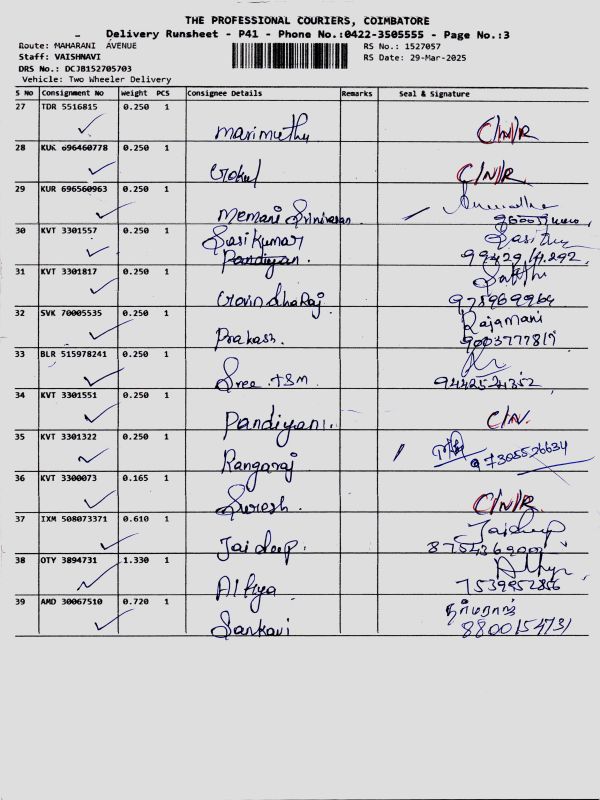 THE PROFESSIONAL COURIERS, COIMBATORE
Delivery Runsheet - P41 - Phone No.:0422-3505555 - Page No.:3
Route: MAHARANI AVENUE
RS No.: 1527057
Staff: VAISHNAVI
RS Date: 29-Mar-2025
DRS No.: DCJB152705703
Vehicle: Two Wheeler Delivery
S NO Consignment No Weight PCS Consignee Details Remarks Seal & Signature
27 TDR 5516815 0.250 1
Marimuthu C/N/R
28 KUR 696460778 0.250 1
Gokul C/N/R
29 KUR 696560963 0.250 1
Memani Srinivasan
30 KVT 3301557 0.250 1
Sasikumar
Pandiyan.
31 KVT 3301817 0.250 1
Sakthi
Govindharaj 978969964
32 SVK 70005535 0.250 1
Rajamani
Prakash. 9003777817
33 BLR 515978241 0.250 1
Sree .TSM 9442524352
34 KVT 3301551 0.250 1
Pandiyan. C/N.
35 KVT 3301322 0.250 1
Rangaraj 97305526634
36 KVT 3300073 0.165 1
Suresh. C/N/R.
37 IXM 508073371 0.610 1
Jaideep
Jaideep.
38 OTY 3894731 1.330 1
Altiya 7539952856
39 AMD 30067510 0.720 1
Sankavi 8800154731